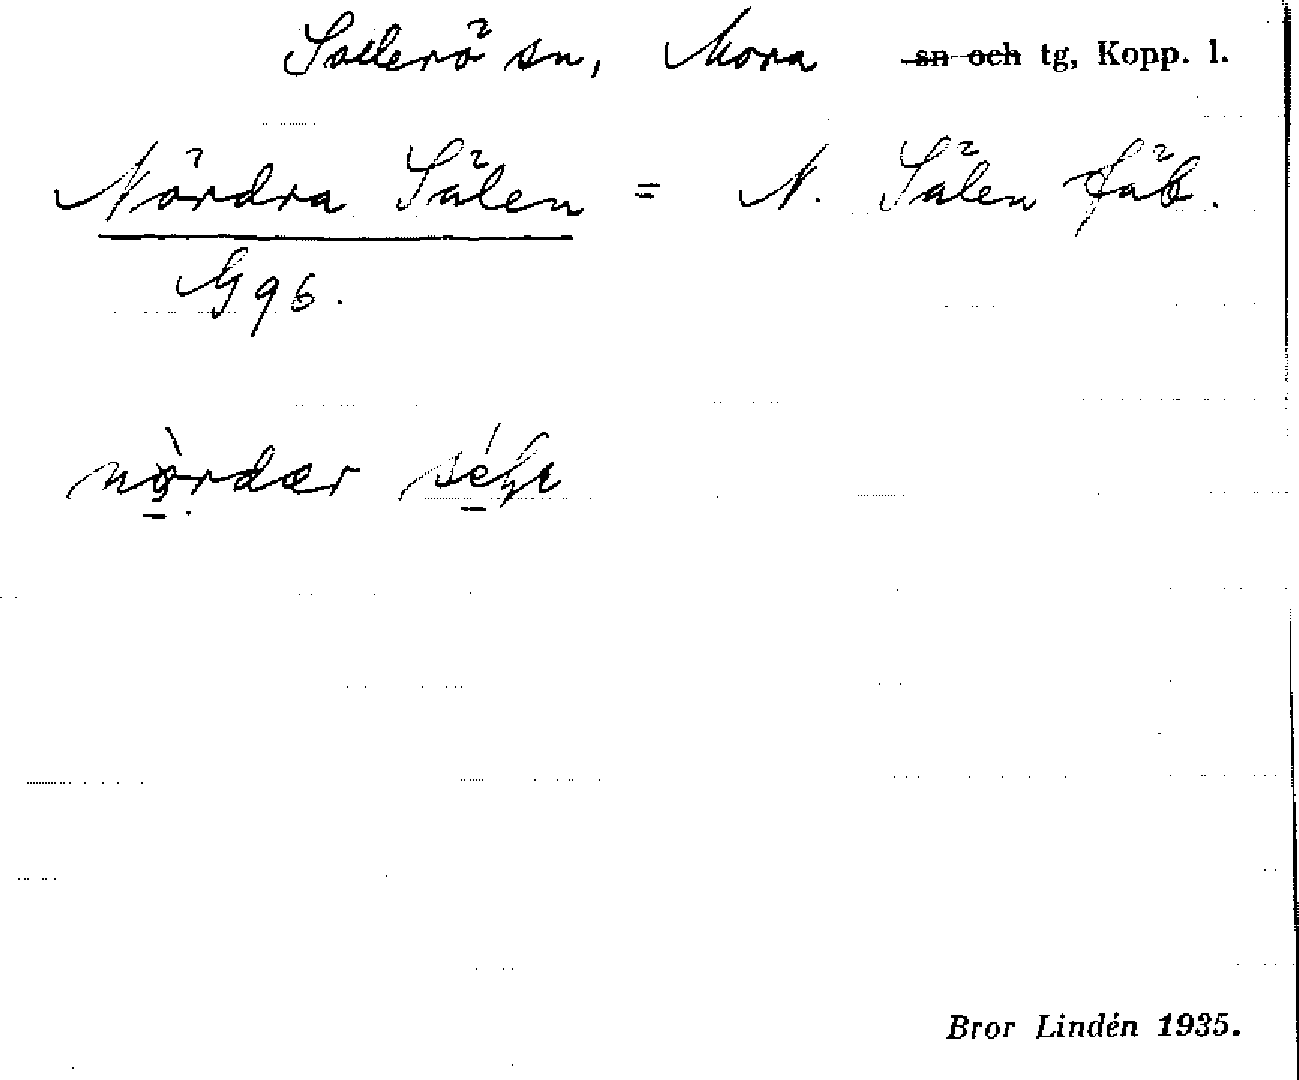 Sollerö sn, Mora sn och tg, Kopp. l.
Nördra Sälen = N. Sälen fäb.
G 96.
Bror Lindén 1935.